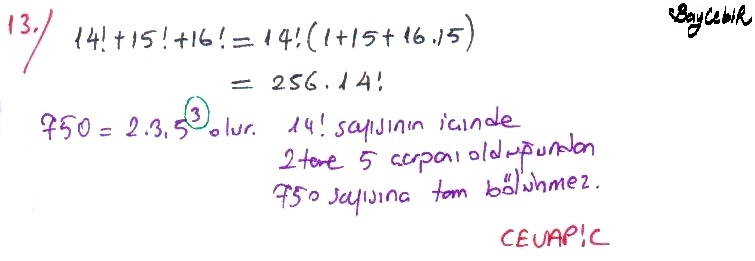 BayCebiR
13./ 14! + 15! + 16! = 14! (1+15+16.15)
= 256.14!
750 = 2.3.5³ olur. 14! sayısının içinde
2 tane 5 çarpanı olduğundan
750 sayısına tam bölünmez.
CEVAP:C